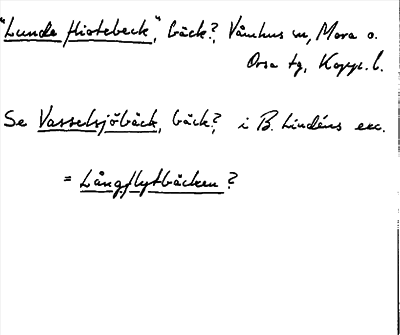 "Lunde Hiotebeck", bäck?, Våmhus sn, Mora o.
Orsa tg, Kopp. l.
Se Vasselsjöbäck, bäck?, i B. Lindéns exc.
= Långflytbäcken?